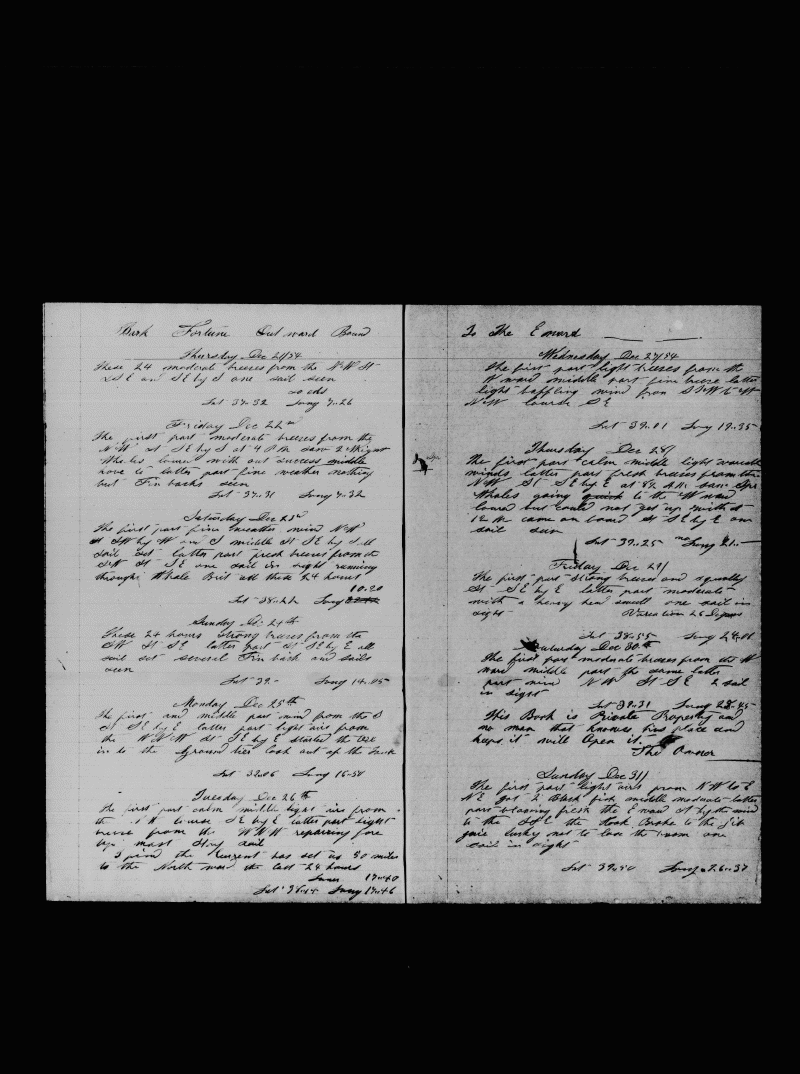 Bark Fortune Out ward Bound
Thursday Dec 21/54
These 24 moderate breezes from the N W St
S E and S E by S one sail seen
Lat 37..32 Long 7..26
Friday Dec 22nd
The first part moderate breezes from the
N W St S E by S at 4 P M saw 2 Right
Whales lowered with out success middle
hove to latter part fine weather nothing
but Fin backs seen
Lat 37..31 Long 7..32
Saturday Dec 23rd
The first part fine weather wind N W
St S W by W and S middle St S E by S all
sail set latter part fresh breezes from the
S W St S E one sail in sight running
through Whale Brit all these 24 hours
10..20
Lat 38..22 Long
Sunday Dec 24th
These 24 hours strong breezes from the
S W St S E latter part St S E by E all
sail set several Fin back and sails
seen
Lat 39.. Long 14..05
Monday Dec 25th
The first and middle part wind from the S
St S E by E latter part light airs from
the W N W St S E by E started the
in to the Ground tier look out of the
Lat 38..06 Long 16..54
Tuesday Dec 26th
The first part calm middle light airs from
the N W Course S E by E latter part light
breeze from the W N W repairing fore
top mast Stay sail
I find the Current has set us 50 miles
to the North ward the last 24 hours
17..40
Lat 38..14 Long 17..46
To The E ward
Wednesday Dec 27/54
The first part light breezes from the
W ward middle part fine breeze latter
light baffling wind from S W to W
N W Course S E
Lat 39..01 Long 19..35
Thursday Dec 28/
The first part calm middle light variable
winds latter part fresh breezes from the
N W St S E by E at 8½ A M saw Spr
Whales going quick to the W ward
lowered but could not get up with at
12 M came on board St S E by E one
sail seen
Lat 39..25 Long 21..
Friday Dec 29/
The first part Strong breezes and squally
St S E by E latter part moderate
with a heavy head swell one sail in
sight Variation 26 Degrees
Lat 38..55 Long 24..01
Saturday Dec 30th
The first part moderate breezes from the W
ward middle part the same latter
part wind N W St S E 2 sail
in sight
Lat 39..31 Long 28..45
This Book is Private Property and
no man that knowes his place and
keeps it will Open it.
The Owner
Sunday Dec 31/
The first part light airs from N W to E
N E got 2 Black fish middle moderate latter
part blowing fresh the E ward St by the wind
to the S & E the Hook Broke to the jib
guie lucky not to lose the boom one
sail in sight
Lat 39..50 Long 26..37